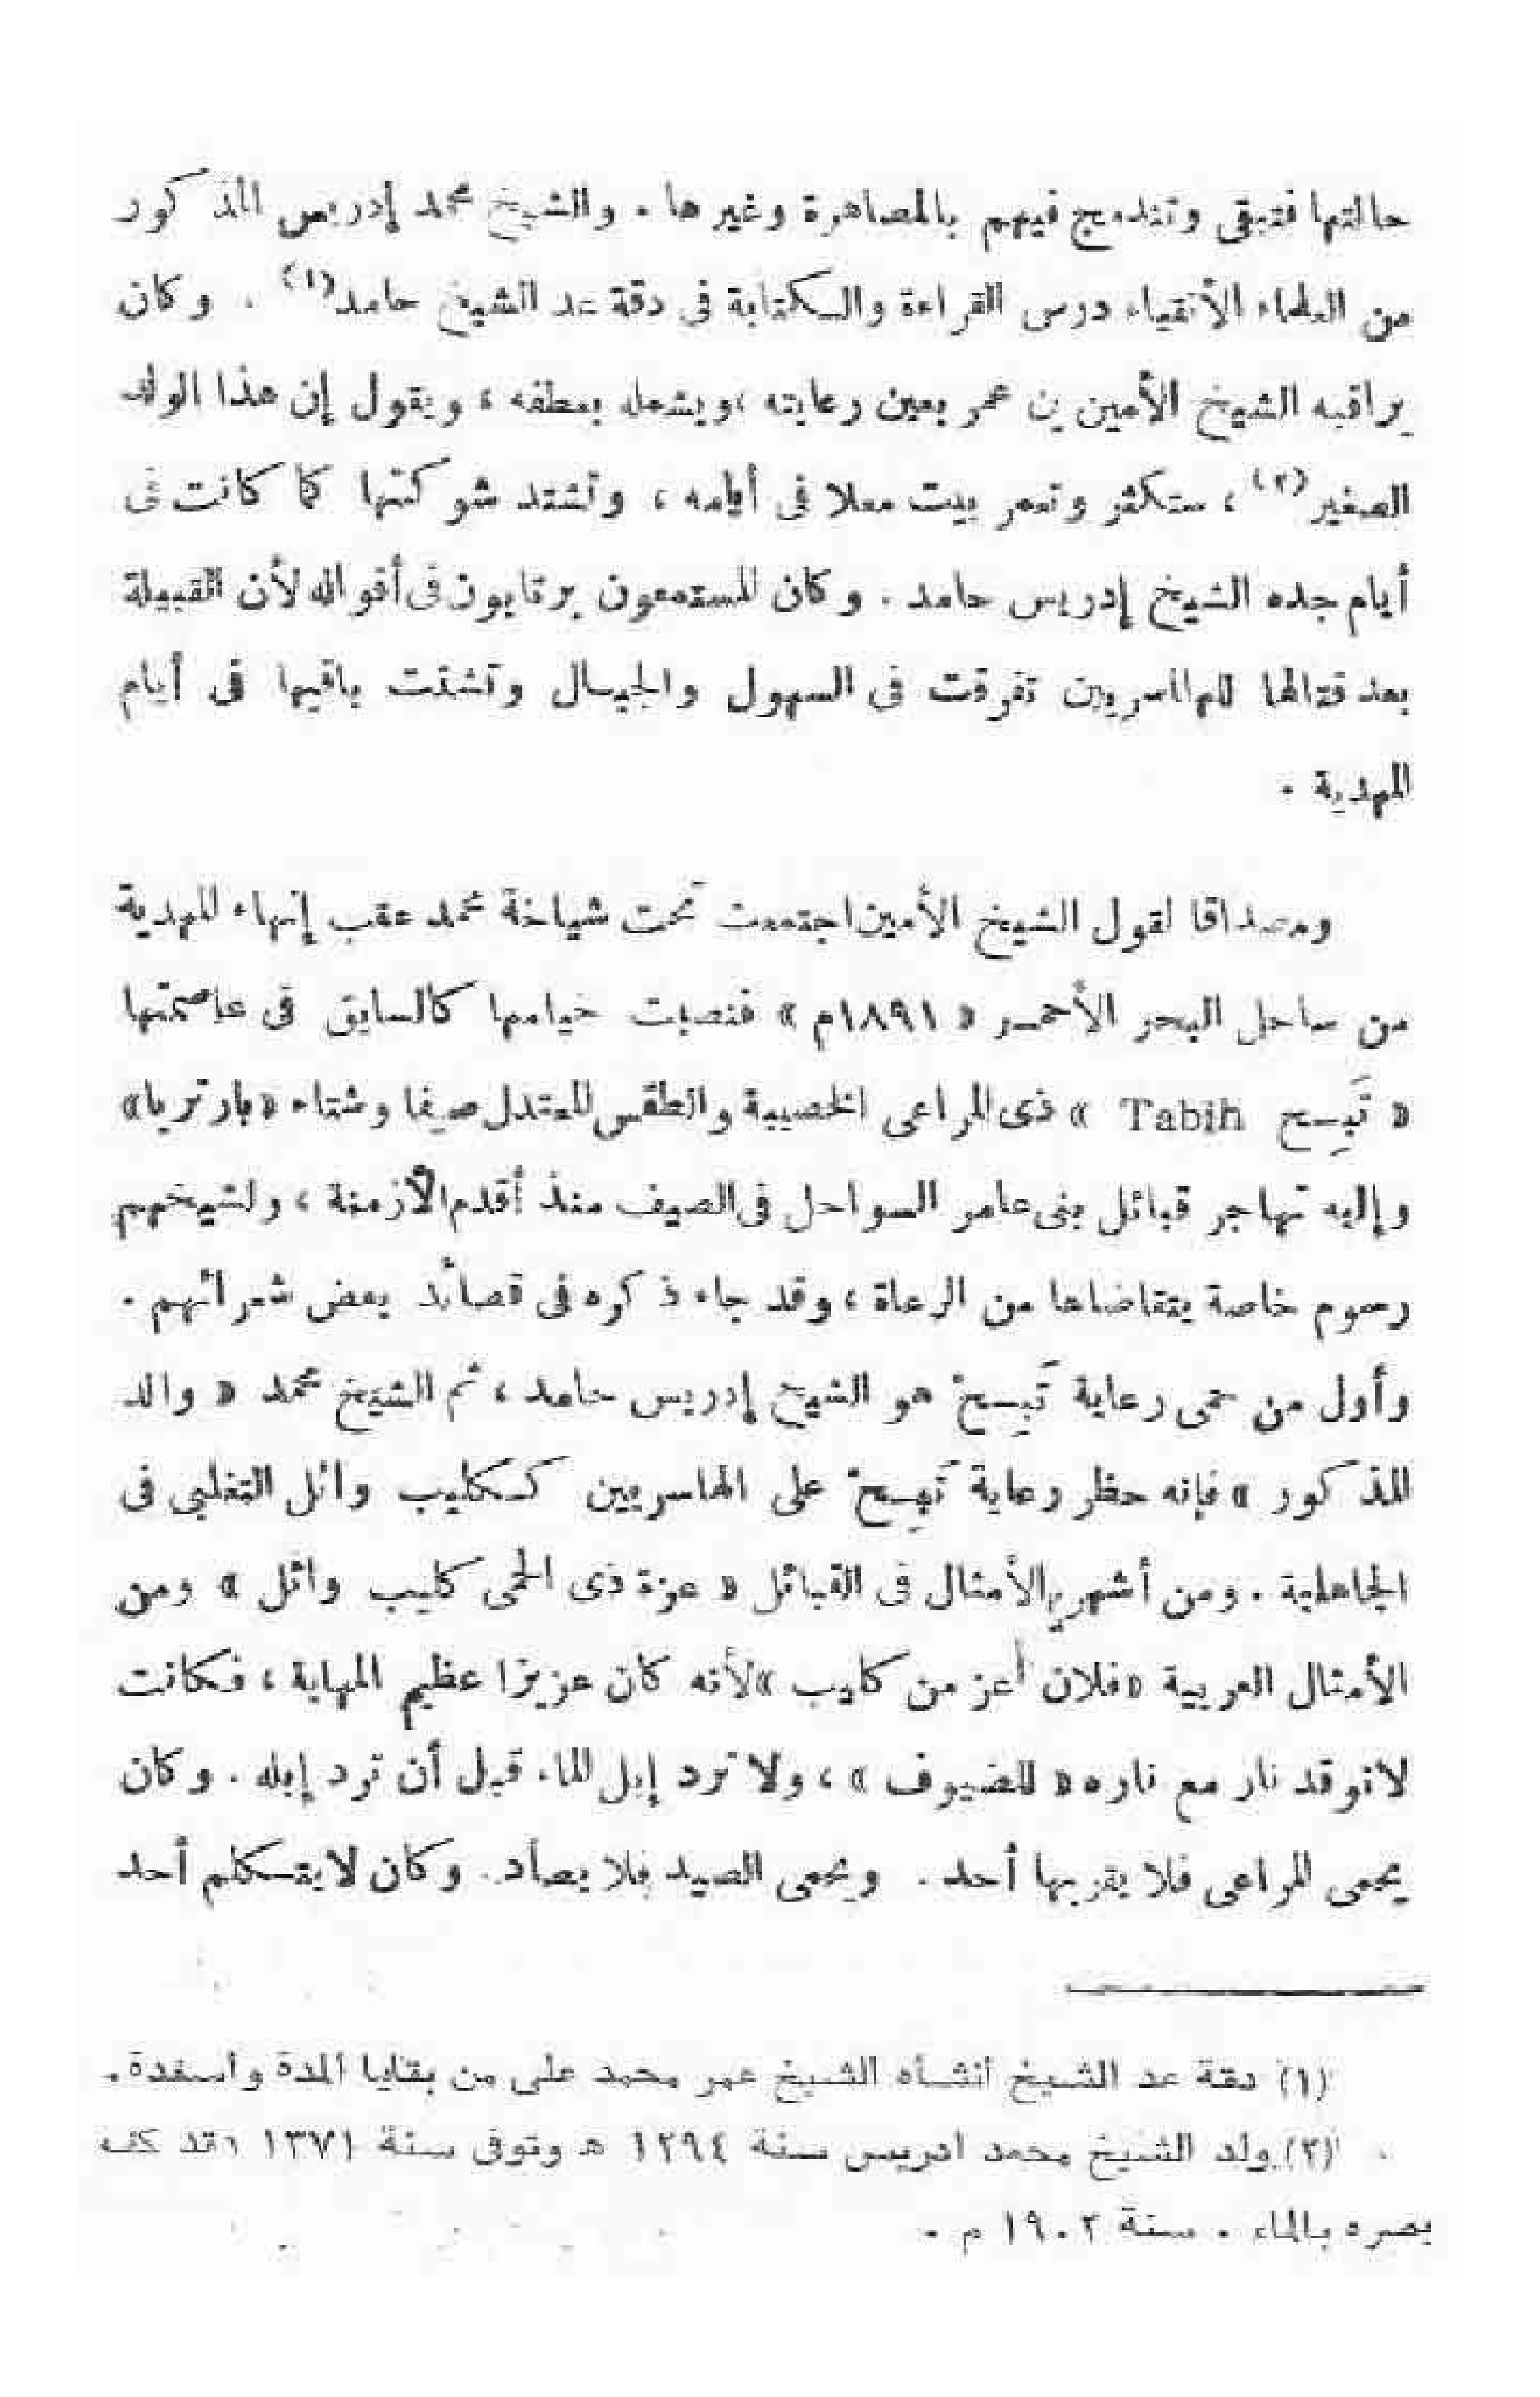 حالتها فتبقى وتندمج فيهم بالمصاهرة وغيرها . والشيخ محمد إدريس المذكور
من العلماء الأتقياء درس القراءة والكتابة فى دقة عد الشيخ حامد(١) . وكان
يراقبه الشيخ الأمين بن عمر بعين رعايته ، ويشمله بعطفه ، ويقول إن هذا الولد
الصغير(٢) ، ستكثر وتعمر بيت معلا فى أيامه ، وتشتد شوكتها كما كانت فى
أيام جده الشيخ إدريس حامد . وكان المستمعون يرتابون فى أقواله لأن القبيلة
بعد قتالها للهاسريين تفرقت فى السهول والجبال وتشتت باقيها فى أيام
المهدية .
ومصداقا لقول الشيخ الأمين اجتمعت تحت شياخة محمد عقب إنهاء المهدية
من ساحل البحر الأحمر « ١٨٩١م » فنصبت خيامها كالسابق فى عاصمتها
« تَبِسح Tabih » ذى المراعى الخصيبة والطقس المعتدل صيفا وشتاء « بارتريا»
وإليه تهاجر قبائل بنى عامر السواحل فى الصيف منذ أقدم الأزمنة ، ولشيخهم
رسوم خاصة يتقاضاها من الرعاة ، وقد جاء ذكره فى قصائد بعض شعرائهم .
وأول من حمى رعاية تَبِسح هو الشيخ إدريس حامد ، ثم الشيخ محمد « والد
المذكور » فإنه حظر رعاية تَبِسح على الهاسريين ككليب وائل التغلبى فى
الجاهلية . ومن أشهر الأمثال فى القبائل « عزة ذى الحمى كليب وائل » ومن
الأمثال العربية «فلان أعز من كليب » لأنه كان عزيزا عظيم المهابة ، فكانت
لاتوقد نار مع ناره « للضيوف » ، ولا ترد إبل الماء قبل أن ترد إبله . وكان
يحمى المراعى فلا يقربها أحد . ويحمى الصيد فلا يصاد . وكان لايتكلم أحد
(١) دقة عد الشيخ أنشأه الشيخ عمر محمد على من بقايا ألمدة وأسفدة .
(٢) ولد الشيخ محمد ادريس سنة ١٢٩٤ هـ وتوفى سنة ١٣٧١ وقد كف
بصره بالماء . سنة ١٩٠٢ م .